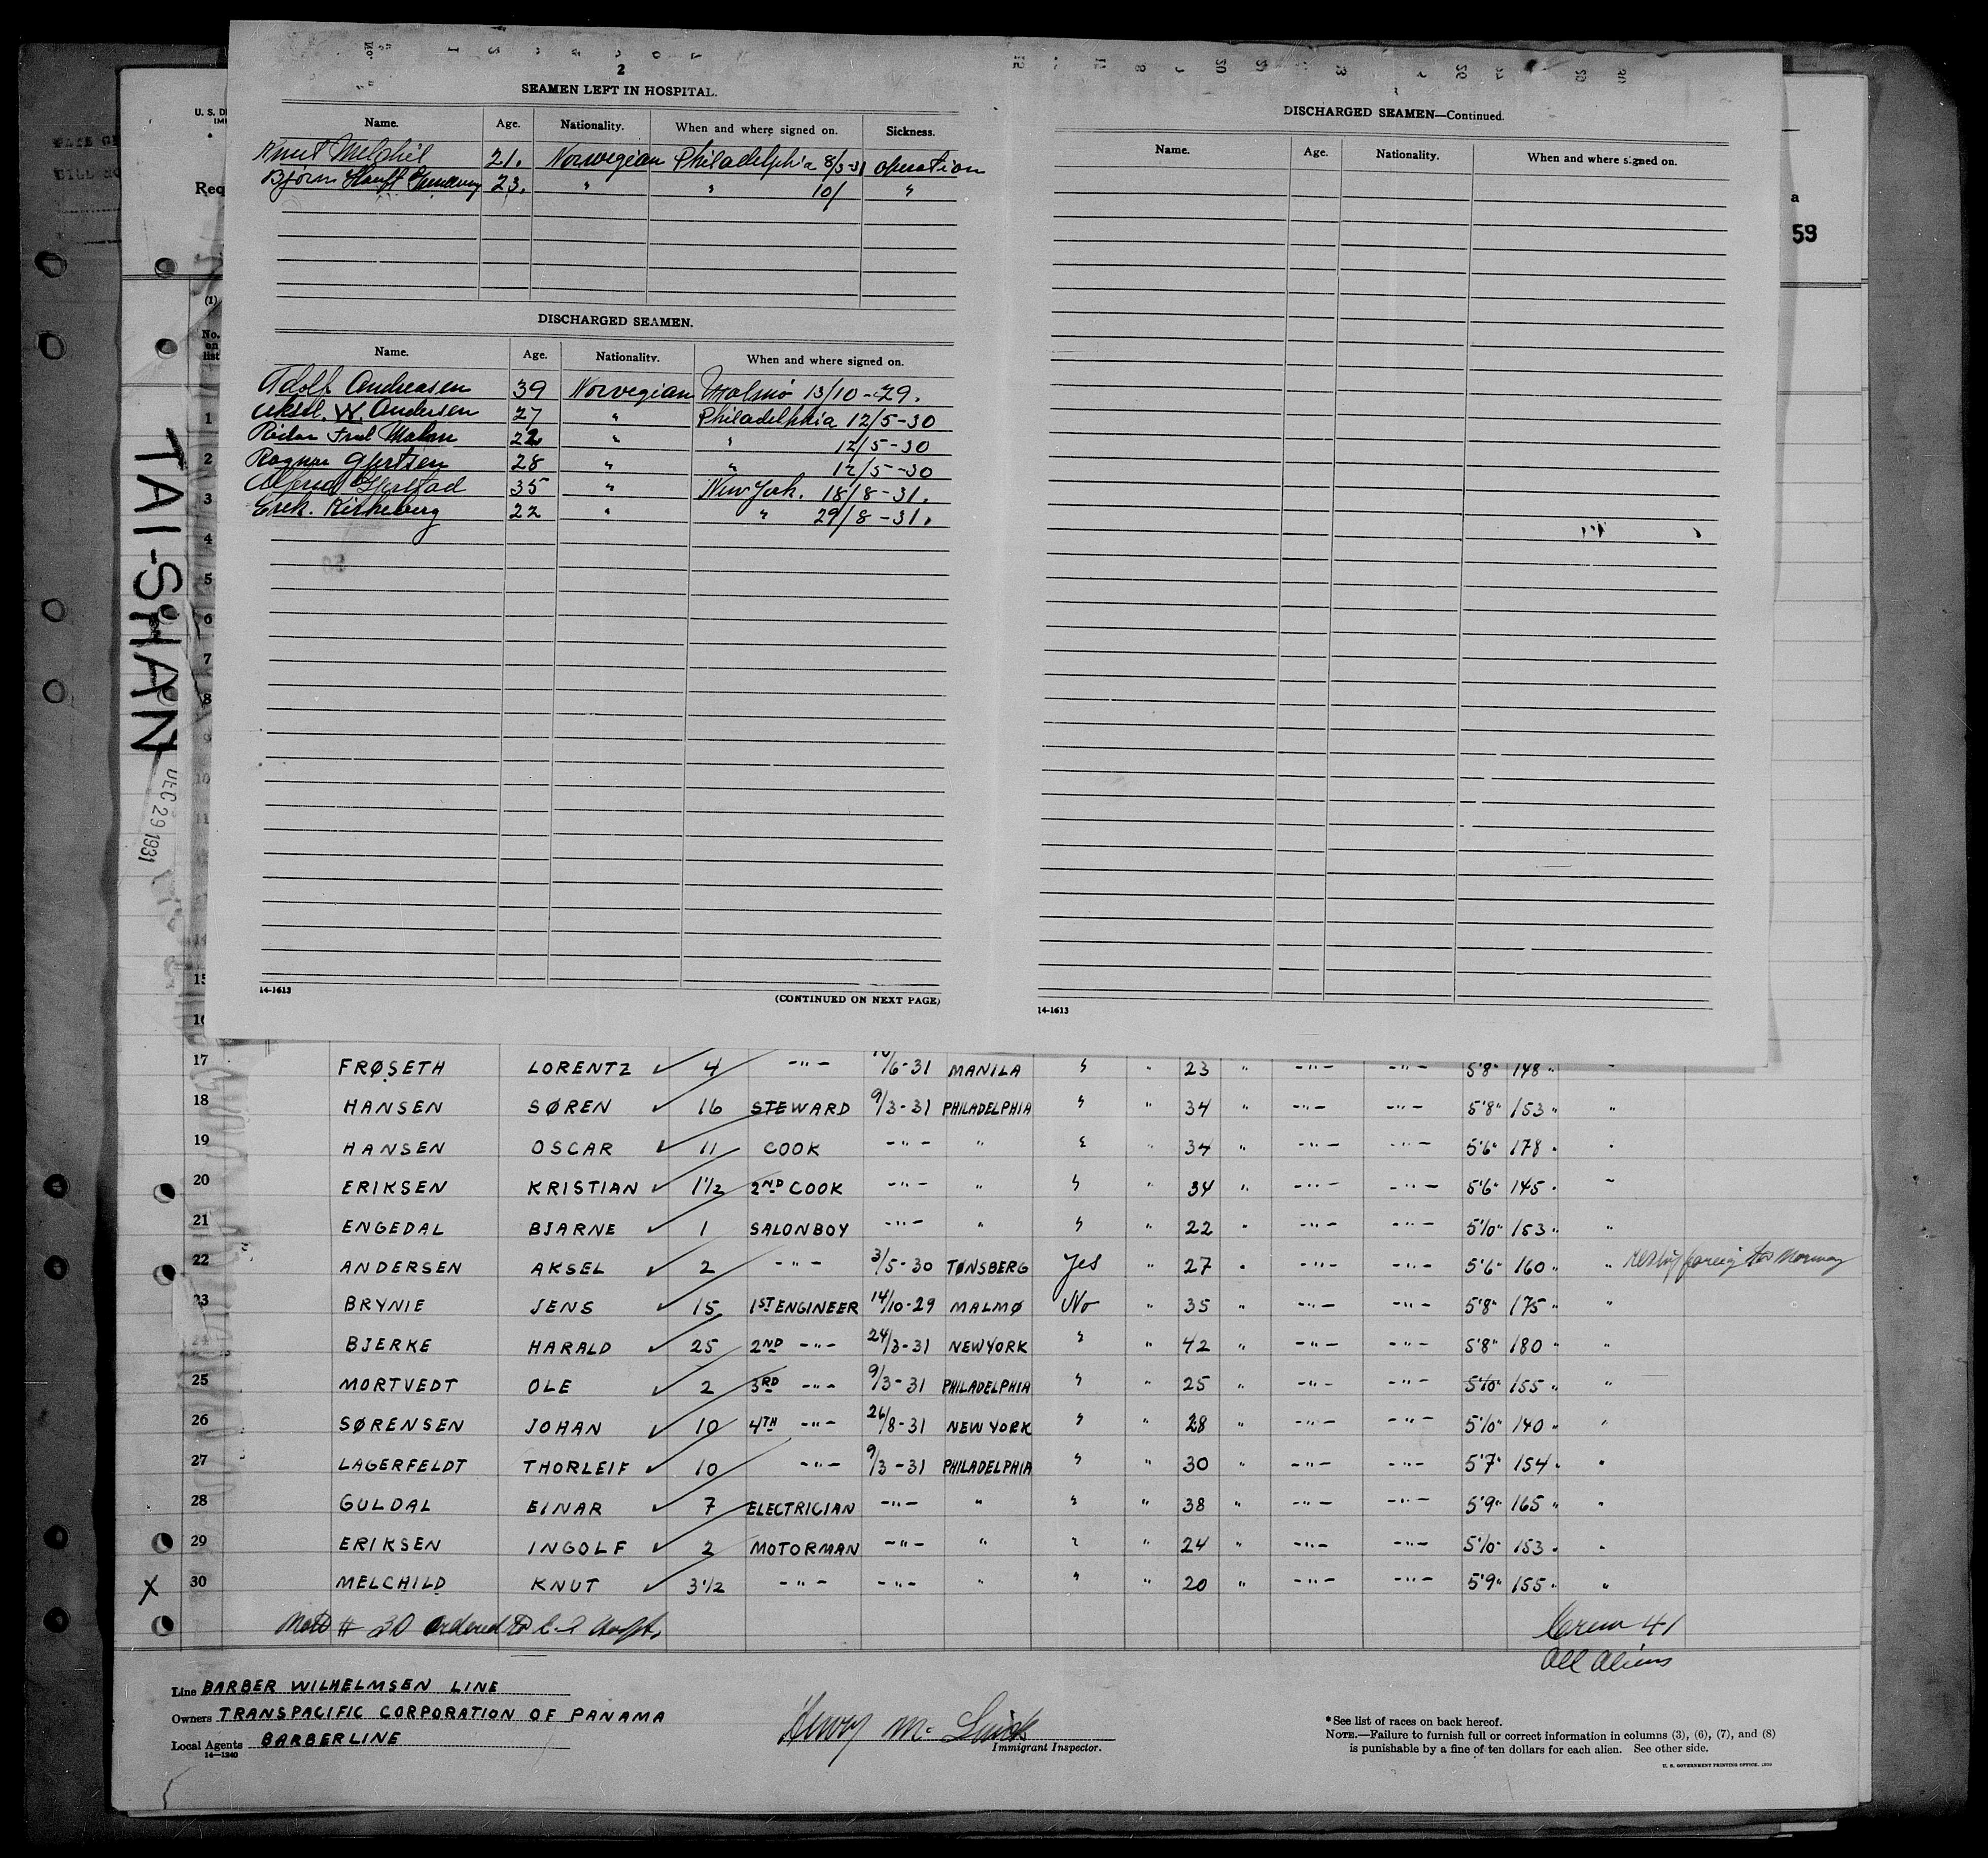 2
SEAMEN LEFT IN HOSPITAL.
Name. Age. Nationality. When and where signed on. Sickness.
Knut Melchil 21. Norwegian Philadelphia 8/3-31 operation
Bjørn 23. " " 10/ "
DISCHARGED SEAMEN.
Name. Age. Nationality. When and where signed on.
Adolf Andreasen 39 Norwegian Malmö 13/10-29.
Aksel. W. Andersen 27 " Philadelphia 12/5-30
22 " " 12/5-30
Ragnar Gjertsen 28 " " 12/5-30
Alfred 35 " New York. 18/8-31.
Erek. 22 " " 29/8-31.
14-1613
(CONTINUED ON NEXT PAGE)
DISCHARGED SEAMEN—Continued.
Name. Age. Nationality. When and where signed on.
14-1613
U. S. D
IM
Req
a
59
(1)
No.
on
list
1
2
3
4
5
6
7
8
9
10
11
15
16
TAI-SHAN
DEC 29 1931
17 FRØSETH LORENTZ ✓ 4 -"- /6-31 MANILA " " 23 " -"- -"- 5'8" 148 "
18 HANSEN SØREN ✓ 16 STEWARD 9/3-31 PHILADELPHIA " " 34 " -"- -"- 5'8" 153 " "
19 HANSEN OSCAR ✓ 11 COOK -"- " " " 34 " -"- -"- 5'6" 178 " "
20 ERIKSEN KRISTIAN ✓ 1 1/2 2ND COOK -"- " " " 34 " -"- -"- 5'6" 145 " "
21 ENGEDAL BJARNE ✓ 1 SALONBOY -"- " " " 22 " -"- -"- 5'10" 153 " "
22 ANDERSEN AKSEL ✓ 2 -"- 3/5-30 TØNSBERG Yes " 27 " -"- -"- 5'6" 160 " " reship foreig to Norway
23 BRYNIE JENS ✓ 15 1ST ENGINEER 14/10-29 MALMØ No " 35 " -"- -"- 5'8" 175 " "
24 BJERKE HARALD ✓ 25 2ND -"- 24/3-31 NEW YORK " " 42 " -"- -"- 5'8" 180 " "
25 MORTVEDT OLE ✓ 2 3RD -"- 9/3-31 PHILADELPHIA " " 25 " -"- -"- 5'10" 155 " "
26 SØRENSEN JOHAN ✓ 10 4TH -"- 26/8-31 NEW YORK " " 28 " -"- -"- 5'10" 140 " "
27 LAGERFELDT THORLEIF ✓ 10 -"- 9/3-31 PHILADELPHIA " " 30 " -"- -"- 5'7" 154 " "
28 GULDAL EINAR ✓ 7 ELECTRICIAN -"- " " " 38 " -"- -"- 5'9" 165 " "
29 ERIKSEN INGOLF ✓ 2 MOTORMAN -"- " " " 24 " -"- -"- 5'10" 153 " "
X 30 MELCHILD KNUT ✓ 3 1/2 -"- -"- " " " 20 " -"- -"- 5'9" 155 " "
# 30 ordered to
Crew 41
All Aliens
Line BARBER WILHELMSEN LINE
Owners TRANSPACIFIC CORPORATION OF PANAMA
Local Agents BARBERLINE
14—1240
Immigrant Inspector.
*See list of races on back hereof.
NOTE.—Failure to furnish full or correct information in columns (3), (6), (7), and (8)
is punishable by a fine of ten dollars for each alien. See other side.
U. S. GOVERNMENT PRINTING OFFICE. 1930